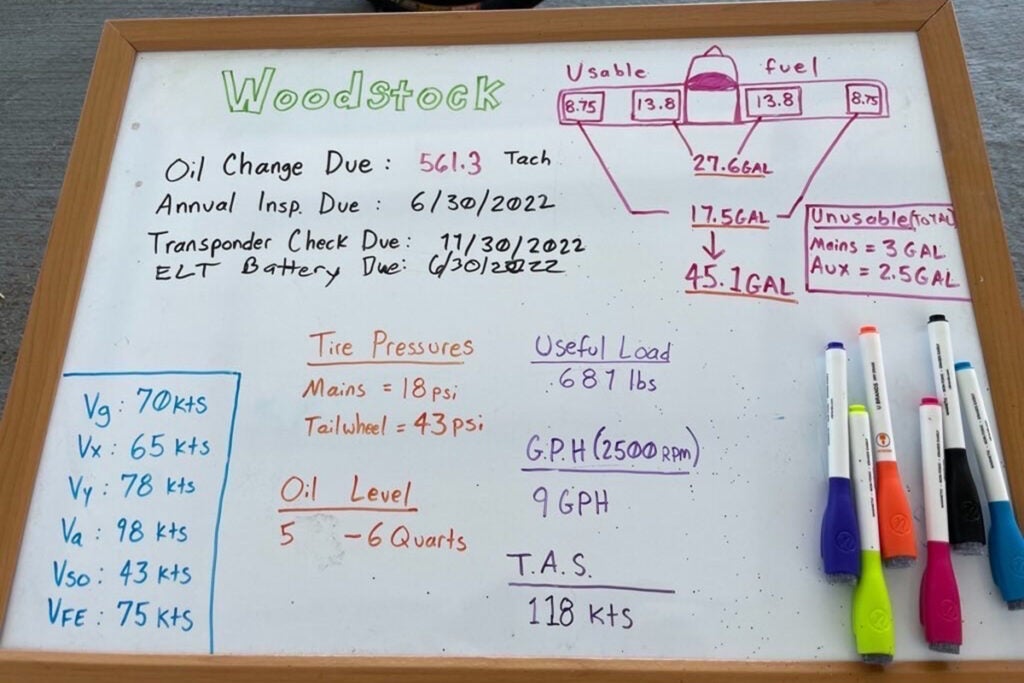 Woodstock
Usable fuel
8.75 13.8 13.8 8.75
27.6 GAL
17.5 GAL
45.1 GAL
Unusable (TOTAL)
Mains = 3 GAL
Aux = 2.5 GAL
Oil Change Due : 561.3 Tach
Annual Insp. Due : 6/30/2022
Transponder Check Due: 11/30/2022
ELT Battery Due: 6/30/2022
Tire Pressures
Mains = 18 psi
Tailwheel = 43 psi
Oil Level
5 - 6 Quarts
Useful Load
687 lbs
G.P.H (2500 RPM)
9 GPH
T.A.S.
118 kts
Vg : 70 kts
Vx : 65 kts
Vy : 78 kts
Va : 98 kts
Vso : 43 kts
VFE : 75 kts
U BRANDS